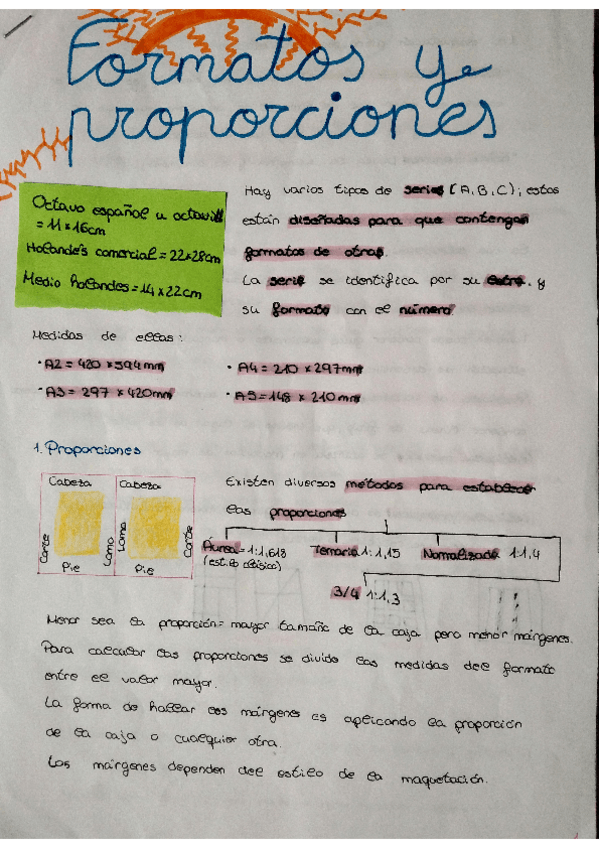 Formatos y
proporciones
Octavo español u octavilla
= 11x16cm
Holandés comercial = 22x28cm
Medio holandes = 14x22cm
Hay varios tipos de series (A,B,C), estos
están diseñadas para que contengan
formatos de otras.
La serie se identifica por su letra y
su formato con el número.
Medidas de ellas:
· A2 = 420 x 594mm
· A4 = 210 x 297mm
· A3 = 297 x 420mm
· A5 = 148 x 210mm
1. Proporciones
Cabeza Cabeza
Corte Lomo Lomo Corte
Pie Pie
Existen diversos métodos para establecer
las proporciones
Aurea = 1:1,618
(estilo clásico)
Ternaria 1:1,15
Normalizada 1:1,4
3/4 1:1,3
Menor sea la proporción = mayor tamaño de la caja pero menor márgenes.
Para calcular las proporciones se divide las medidas del formato
entre el valor mayor.
La forma de hallar los márgenes es aplicando la proporción
de la caja o cualquier otra.
Los márgenes dependen del estilo de la maquetación.